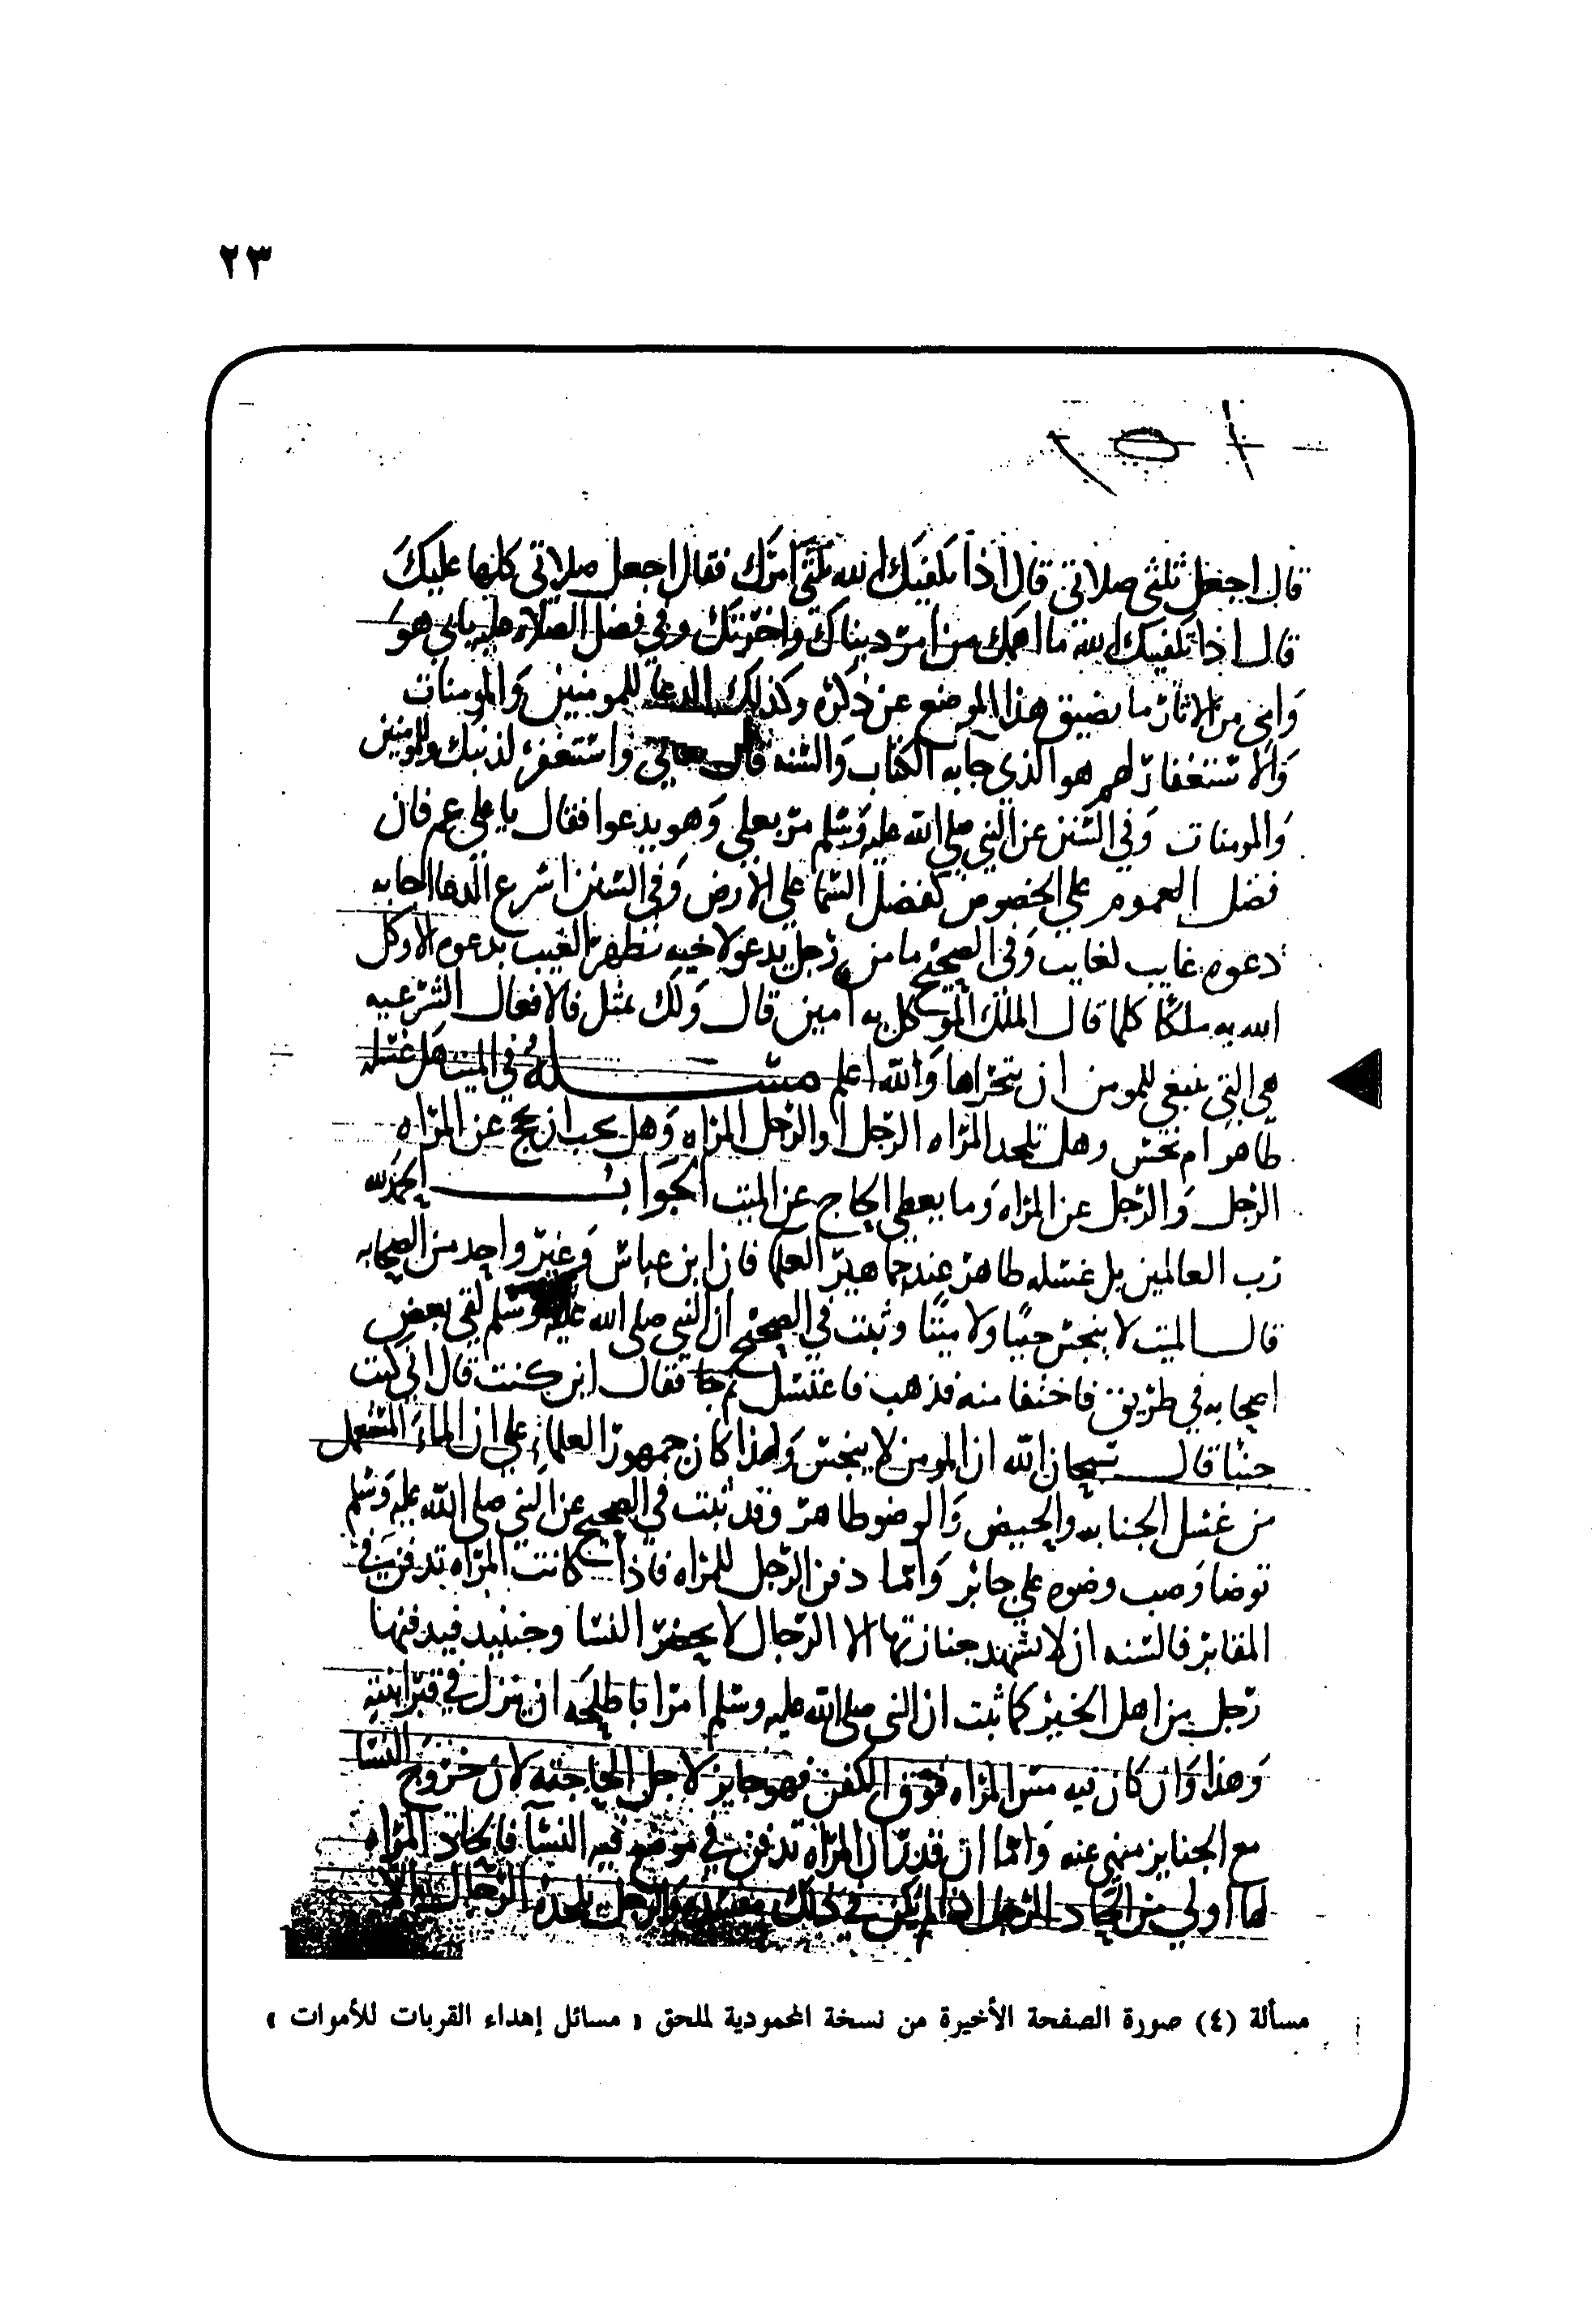 ٢٣
قال اجعل ثلثي صلاتي قال اذا يكفيك الله ثلثي امرك فقال اجعل صلاتي كلها عليك
قال اذا يكفيك الله ما اهمك من امر دنياك واخرتك وفي فضل الصلاه عليه بابي هو
وامي من الاثار ما يضيق هذا الموضع عن ذكره وكذلك الدعا للمومنين والمومنات
والاستغفار لهم هو الذي جا به الكتاب والسنه قال تعالي واستغفر لذنبك وللمومنين
والمومنات وفي السنن عن النبي صلي الله عليه وسلم مر بعلي وهو يدعوا فقال يا علي عم فان
فضل العموم علي الخصوص كفضل السما علي الارض وفي السنن اسرع الدعا اجابه
دعوه غايب لغايب وفي الصحيح ما من رجل يدعو لاخيه بظهر الغيب بدعوه الا وكل
الله به ملكا كلما قال الملك الموكل به امين قال ولك بمثل فالافعال الشرعيه
هي التي ينبغي للمومن ان يتحراها والله اعلم مسله في الميت هل غسله
طاهر ام نجس وهل تلحد المراه الرجل او الرجل المراه وهل يجب ان يحج عن المراه
الرجل والرجل عن المراه وما يعطي الحاج عن الميت الجواب الحمد لله
رب العالمين بل غسله طاهر عند جماهير العلما فان ابن عباس وغير واحد من الصحابه
قال الميت لا ينجس حيا ولا ميتا وثبت في الصحيح ان النبي صلي الله عليه وسلم لقي بعض
اصحابه في طريق فاختفا منه فذهب فاغتسل ثم جا فقال اين كنت قال اني كنت
جنبا قال سبحان الله ان المومن لا ينجس ولهذا كان جمهور العلماء علي ان الماء المستعمل
من غسل الجنابه والحيض والوضو طاهر وقد ثبت في الصحيح عن النبي صلي الله عليه وسلم
توضا وصب وضوه علي جابر واما دفن الرجل للمراه فاذا كانت المراه تدفن في
المقابر فالسنه ان لا يشهد جنازتها الا الرجال لا يحضر النسا وحينيد فيدفنها
رجل من اهل الخير كما ثبت ان النبي صلي الله عليه وسلم امر ابا طلحه ان ينزل في قبر ابنته
وهذا وان كان فيه مس المراه فوق الكفن فهو جايز لاجل الحاجه لان خروج النسا
مع الجنايز منهي عنه واما ان قدر ان المراه تدفن في موضع فيه النسآ فالحاد المراه
لها اولي من الحاد الرجل اذا لم يكن في ذلك مفسده والرجل يلحده الرجال
مسألة (٤) صورة الصفحة الأخيرة من نسخة المحمودية لملحق « مسائل إهداء القربات للأموات »